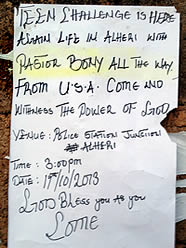 TEEN CHALLENGE IS HERE
AGAIN LIFE IN ALHERI WITH
PASTOR BONY ALL THE WAY
FROM U.S.A. COME AND
WITNESS THE POWER OF GOD
VENUE: POLICE STATION JUNCTION
ALHERI
TIME: 3:00pm
DATE: 19th/10/2013
GOD BLESS YOU AS YOU
COME